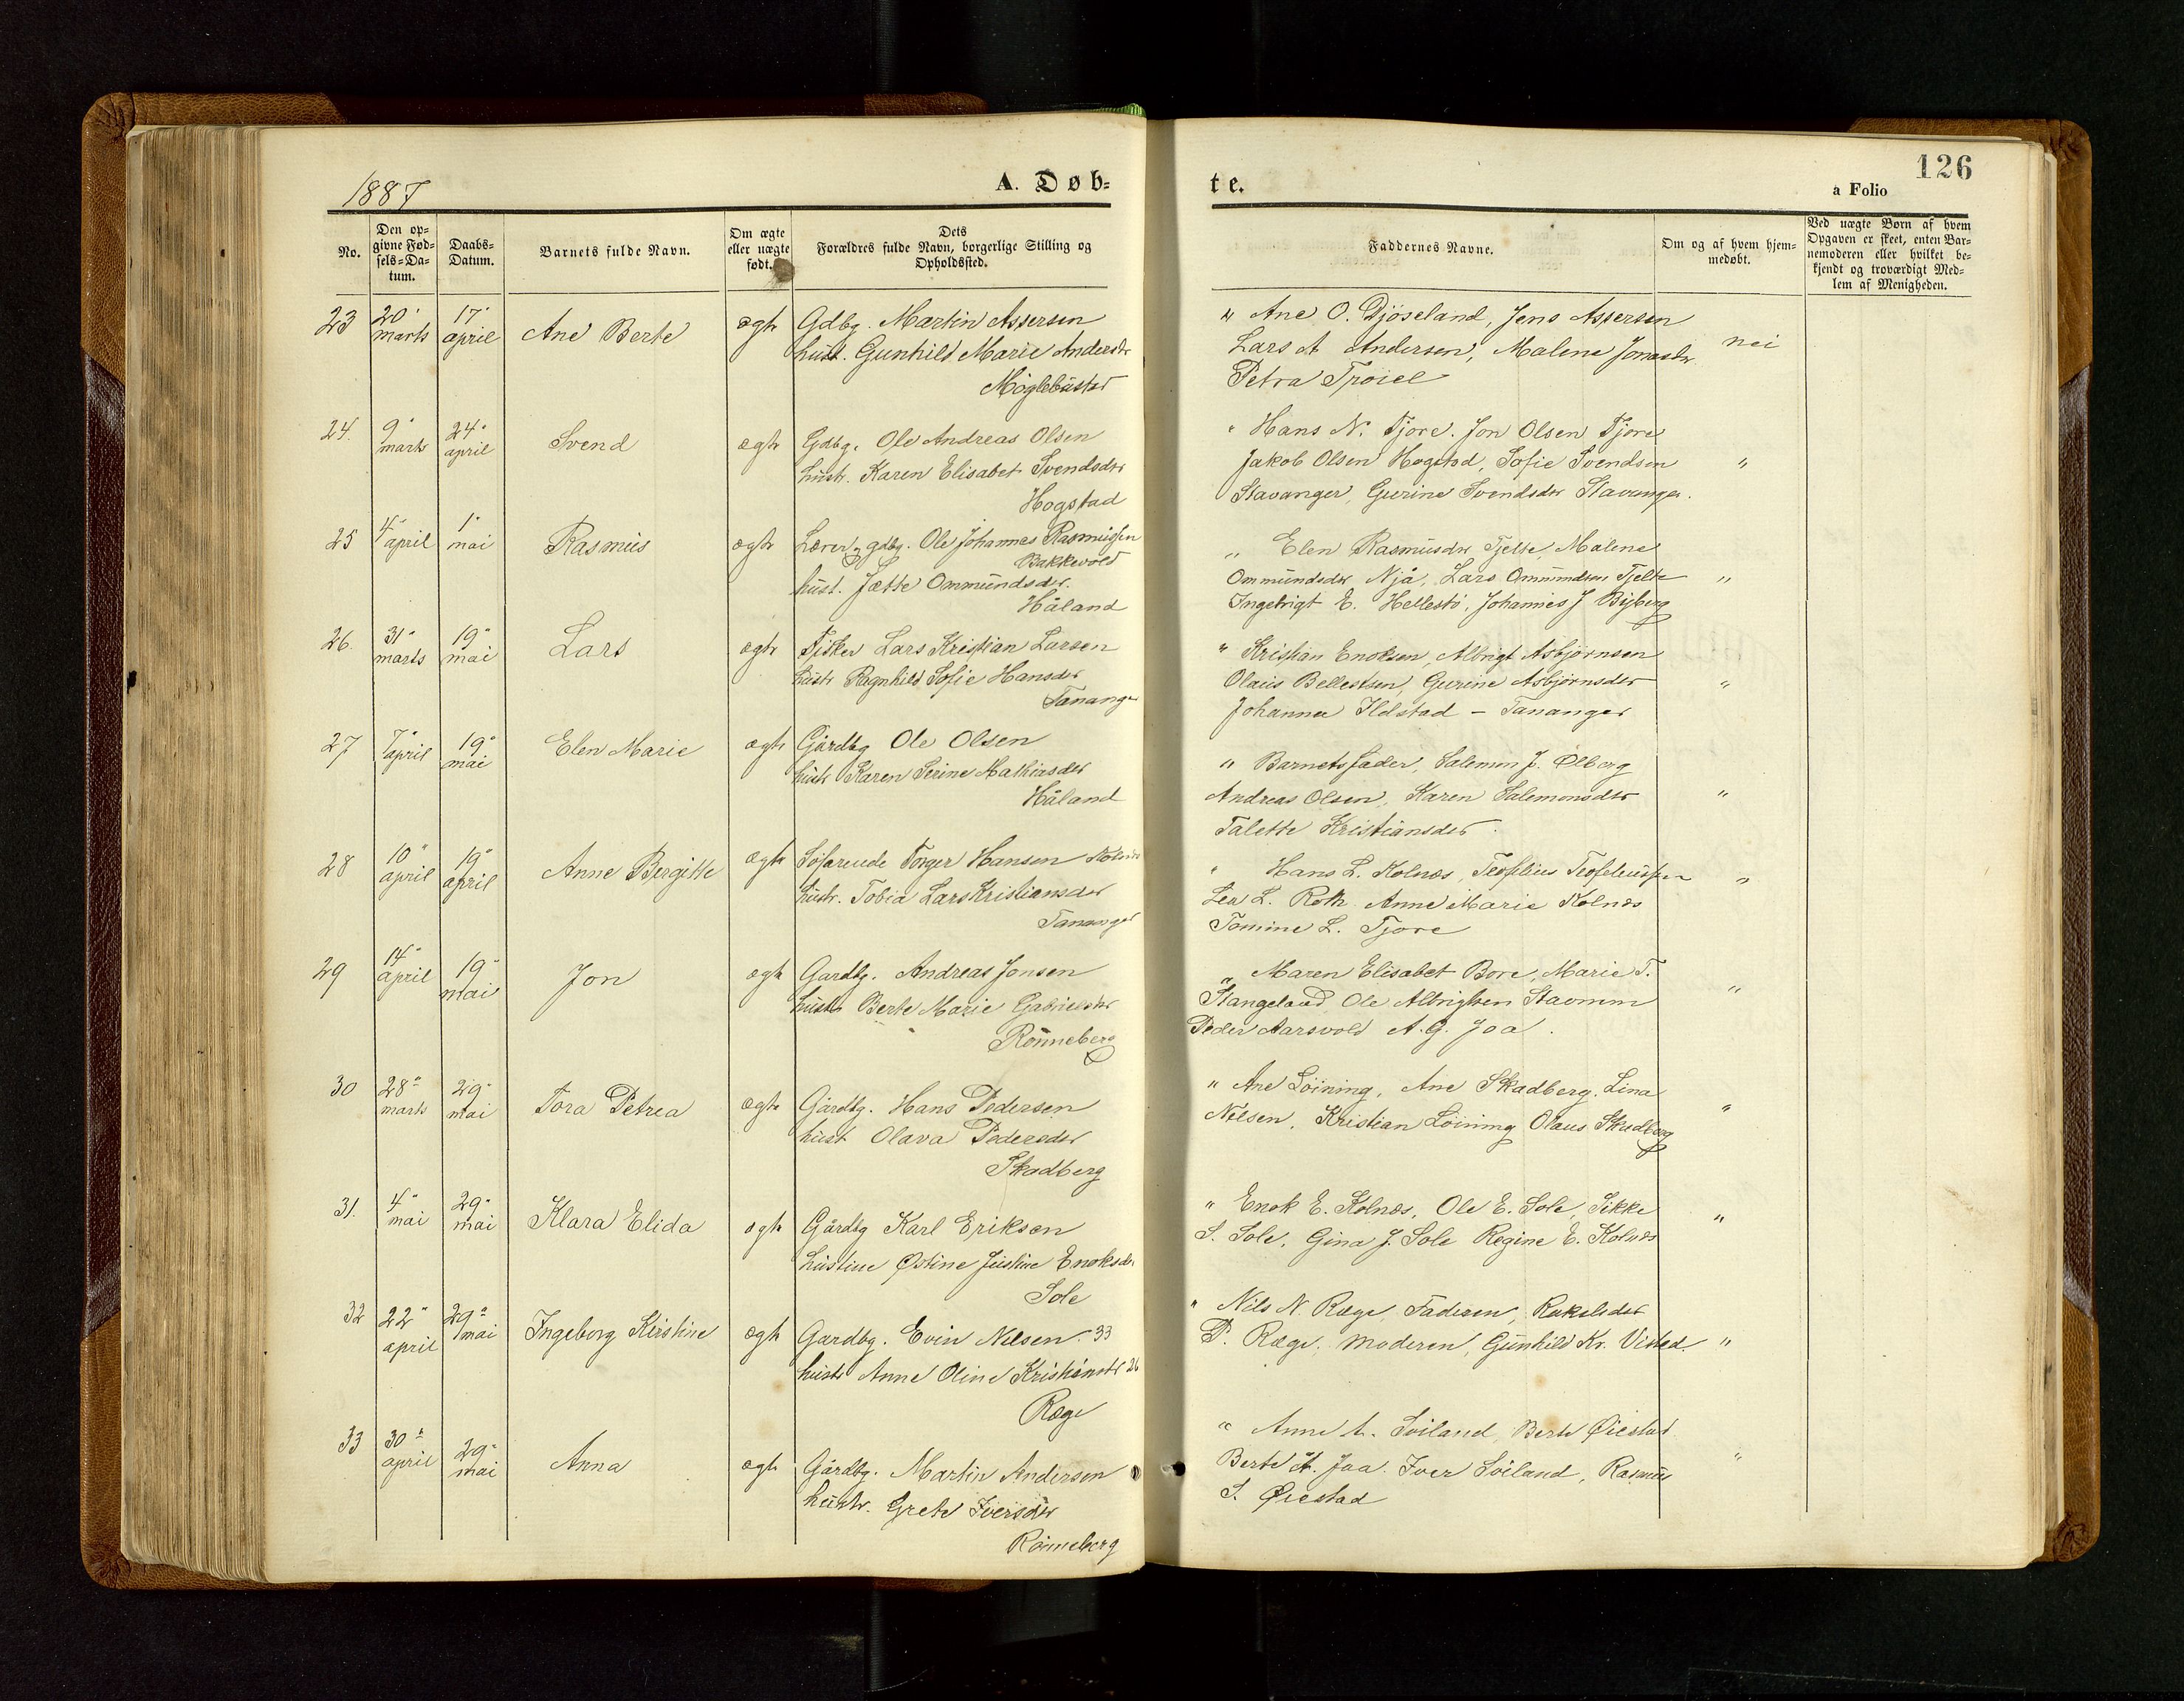 1887
A. Døb-
No.
Den op-
givne Fød-
sels-Da-
tum.
Daabs-
Datum.
Barnets fulde Navn.
Om ægte
eller uægte
født.
Dets
Forældres fulde Navn, borgerlige Stilling og
Opholdssted.
23 20" marts 17" april Ane Berte ægte Gdbg. Martin Assersen
hust. Gunhild Marie Andersdr
Møglebustad
24. 9" marts 24" april Svend ægte Gdbg. Ole Andreas Olsen
hustr. Karen Elisabet Svendsdtr
Hogstad
25 4" april 1" mai Rasmus ægte Lærer og gdbg. Ole Johannes Rasmussen
Bakkevold
hust. Jætte Ommundsdr.
Håland
26. 31" marts 19" mai Lars ægte Fisker Lars Kristian Larsen
hustr Ragnhild Sofie Hansdr
Tananger
27 7" april 19" mai Elen Marie ægte Gårdbg Ole Olsen
hustr Karen Serine Mathiasdr
Håland
28 10" april 19" april Anne Bergitte ægte Søfarende Torger Hansen Kolnes
hustr. Tobia Lars Kristiansdr
Tananger
29 14" april 19" mai Jon ægte Gardbg. Andreas Jonsen
hustr Berte Marie Gabrielsdr
Rønneberg
30 28" marts 29" mai Tora Petrea ægte Gårdbg. Hans Pedersen
hust Olava Pedersdr
Skadberg
31. 4" mai 29" mai Klara Elida ægte Gårdbg Karl Eriksen
hustrue Østine Justine Enoksdr
Sole
32 22" april 29" mai Ingeborg Kirstine ægte Gardbg. Evin Nilsen 33
hustr Anne Oline Kristiansdr 26
Ræge
33 30" april 29" mai Anna ægte Gårdbg. Martin Andersen
hustr. Grete Iversdr
Rønneberg
te.
a Folio
126
Faddernes Navne.
Om og af hvem hjem-
medøbt.
Ved uægte Børn af hvem
Opgaven er skeet, enten Bar-
nemoderen eller hvilket be-
kjendt og troværdigt Med-
lem af Menigheden.
" Ane O. Djøseland, Jens Assersen
Lars A Andersen, Malene Jonasdr nei
Petra Trøiel
" Hans N. Tjore. Jon Olsen Tjore
Jakob Olsen Hogstad, Sofie Svendsen "
Stavanger, Gurine Svendsdr Stavanger.
" Elen Rasmusdr Tjelte, Malene
Ommundsdr Njå, Lars Ommundsen Tjelte "
Ingebrigt E. Hellestø, Johannes J Byberg
" Kristian Enoksen, Albrigt Asbjørnsen
Olaus Bellestsen, Gurine Asbjørnsdr "
Johanna Ildstad – Tananger
" Barnets fader, Salemon J. Ølberg
Andreas Olsen, Karen Salemonsdr "
Talette Kristiansdr.
" Hans L. Kolnes, Teofilius Teofiliussen "
L. Roth Anne Marie Kolnes
Tomine L. Tjore
" Maren Elisabet Bore, Marie T.
Stangeland Ole Albrigtsen "
Peder Aarsvold A. G. Joa.
" Ane Løining, Ane Skadberg, Lina
Nilsen, Kristian Løining Olaus Skadberg "
" Enok E. Kolnes, Ole E. Sole, Sikke
S. Sole, Gina J. Sole Regine E. Kolnes "
" Nils N. Ræge, Faderen, Rakel
P. Ræge, Moderen, Gunhild Kr. Vistad. "
" Anne A. Soiland, Berte Øiestad
Berte A. Joa. Iver Soiland, Rasmus "
S. Øiestad